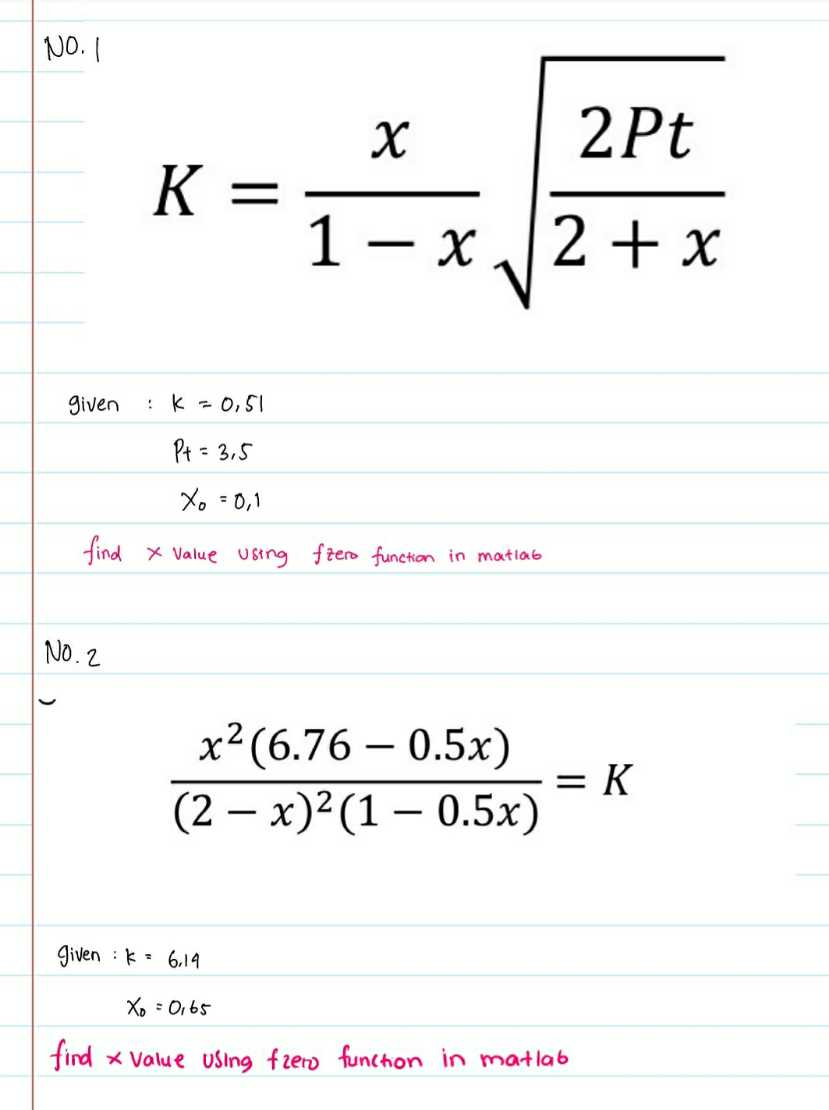 NO. 1
K = x / (1 − x) √(2Pt / (2 + x))
given : k = 0,51
Pt = 3,5
X₀ = 0,1
find x value using fzero function in matlab
NO. 2
x²(6.76 − 0.5x) / ((2 − x)²(1 − 0.5x)) = K
given : k = 6,19
X₀ = 0,65
find x value using fzero function in matlab